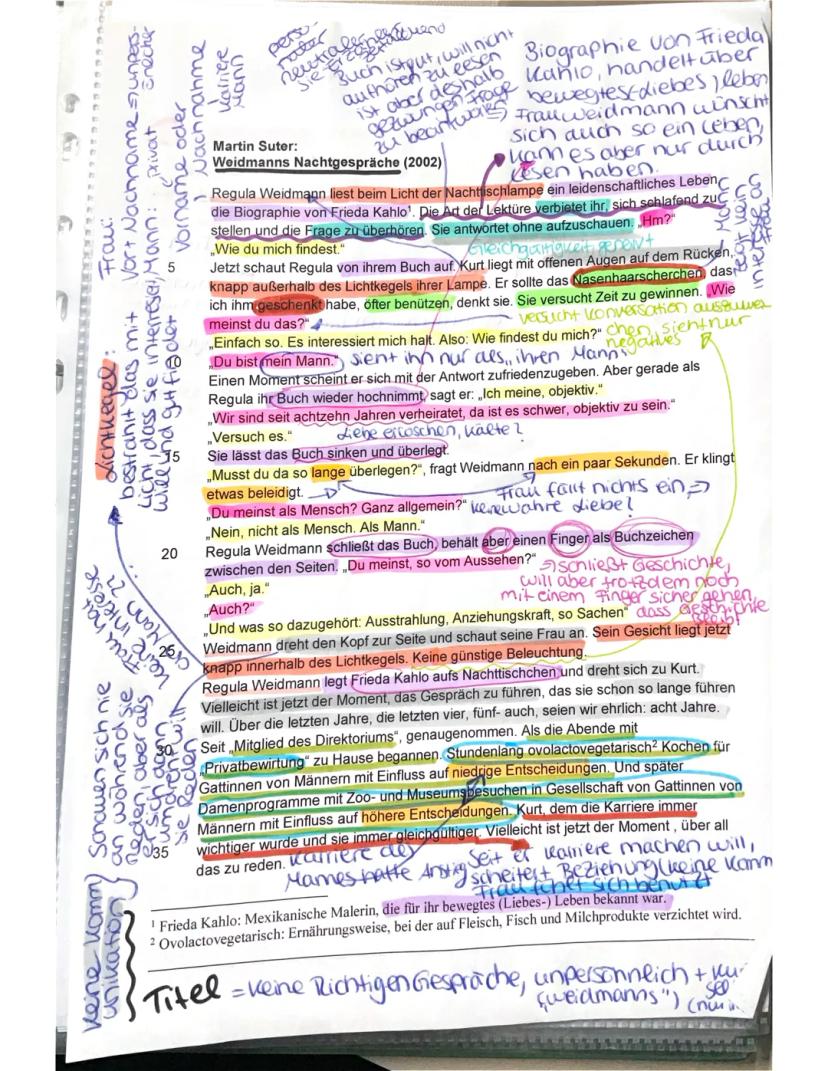 Martin Suter:
Weidmanns Nachtgespräche (2002)
Regula Weidmann liest beim Licht der Nachttischlampe ein leidenschaftliches Leben,
die Biographie von Frieda Kahlo¹. Die Art der Lektüre verbietet ihr, sich schlafend zu
stellen und die Frage zu überhören. Sie antwortet ohne aufzuschauen. „Hm?“
„Wie du mich findest.“
Gleichgültigkeit genervt
5 Jetzt schaut Regula von ihrem Buch auf. Kurt liegt mit offenen Augen auf dem Rücken,
knapp außerhalb des Lichtkegels ihrer Lampe. Er sollte das Nasenhaarscherchen, das
ich ihm geschenkt habe, öfter benützen, denkt sie. Sie versucht Zeit zu gewinnen. „Wie
meinst du das?“
versucht Konversation
„Einfach so. Es interessiert mich halt. Also: Wie findest du mich?“
sieht nur
negatives
10 „Du bist mein Mann.“ sieht ihn nur als „ihren Mann“
Einen Moment scheint er sich mit der Antwort zufriedenzugeben. Aber gerade als
Regula ihr Buch wieder hochnimmt, sagt er: „Ich meine, objektiv.“
„Wir sind seit achtzehn Jahren verheiratet, da ist es schwer, objektiv zu sein.“
„Versuch es.“ Liebe erloschen, Kälte?
15 Sie lässt das Buch sinken und überlegt.
„Musst du da so lange überlegen?“, fragt Weidmann nach ein paar Sekunden. Er klingt
etwas beleidigt. Frau fällt nichts ein, ⇒
„Du meinst als Mensch? Ganz allgemein?“ keine wahre Liebe?
„Nein, nicht als Mensch. Als Mann.“
20 Regula Weidmann schließt das Buch, behält aber einen Finger als Buchzeichen
zwischen den Seiten. „Du meinst, so vom Aussehen?“ ⇒ schließt Geschichte,
will aber trotzdem noch
„Auch, ja.“
mit einem Finger sicher gehen,
„Auch?“
dass Geschichte
bleibt
„Und was so dazugehört: Ausstrahlung, Anziehungskraft, so Sachen“
25 Weidmann dreht den Kopf zur Seite und schaut seine Frau an. Sein Gesicht liegt jetzt
knapp innerhalb des Lichtkegels. Keine günstige Beleuchtung.
Regula Weidmann legt Frieda Kahlo aufs Nachttischchen und dreht sich zu Kurt.
Vielleicht ist jetzt der Moment, das Gespräch zu führen, das sie schon so lange führen
will. Über die letzten Jahre, die letzten vier, fünf- auch, seien wir ehrlich: acht Jahre.
30 Seit „Mitglied des Direktoriums“, genaugenommen. Als die Abende mit
„Privatbewirtung“ zu Hause begannen. Stundenlang ovolactovegetarisch² Kochen für
Gattinen von Männern mit Einfluss auf niedrige Entscheidungen. Und später
Damenprogramme mit Zoo- und Museumsbesuchen in Gesellschaft von Gattinnen von
Männern mit Einfluss auf höhere Entscheidungen. Kurt, dem die Karriere immer
35 wichtiger wurde und sie immer gleichgültiger. Vielleicht ist jetzt der Moment , über all
das zu reden. Karriere des
Mannes hatte Anstieg
Seit er Karriere machen will,
scheitert Beziehung (keine Komm
Frau fühlt sich benutzt
¹ Frieda Kahlo: Mexikanische Malerin, die für ihr bewegtes (Liebes-) Leben bekannt war.
² Ovolactovegetarisch: Ernährungsweise, bei der auf Fleisch, Fisch und Milchprodukte verzichtet wird.
Titel = Keine Richtigen Gespräche, unpersönlich +
(„weidmanns“)
Buch ist gut, will nicht
aufhören zu lesen
ist aber deshalb
gezwungen Frage
zu beantworten
Biographie von Frieda
Kahlo, handelt über
bewegtes (diebes) leben
Frau weidmann wünscht
sich auch so ein Leben,
kann es aber nur durch
lesen haben.
Karriere
Mann
Vorname oder
Nachname
Frau:
Vor + Nachname
Mann: privat
Lichtkegel:
bestrahlt das mit
Licht, dass sie interessiert,
will und gut findet
Frau hat
keine Interesse
an Mann ??
Schauen sich nie
an während sie
reden, aber als
er sich dann
umdreht will
sie Reden
Keine Komm
unikation